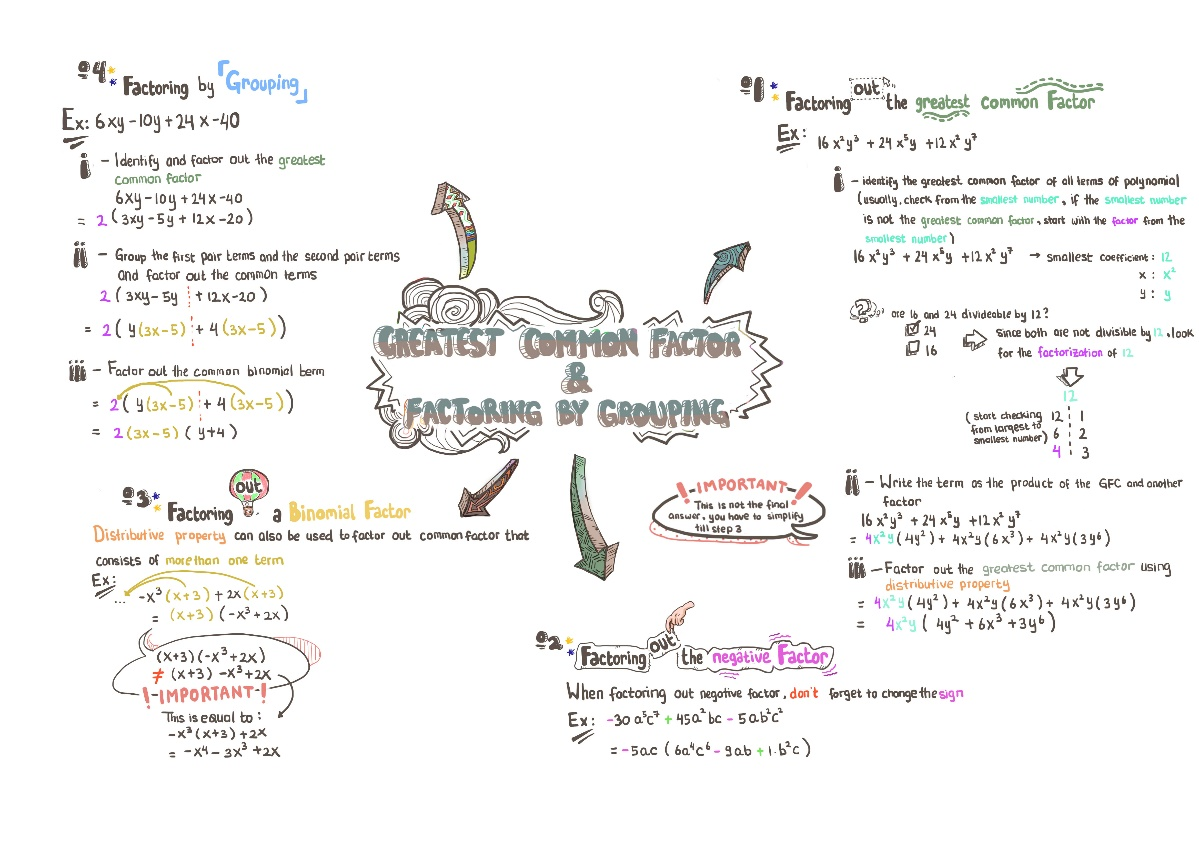 GREATEST COMMON FACTOR
&
FACTORING BY GROUPING
№1 Factoring out the greatest common Factor
Ex: 16x²y³ + 24x⁵y + 12x²y⁷
i - identify the greatest common factor of all terms of polynomial
(usually, check from the smallest number, if the smallest number
is not the greatest common factor, start with the factor from the
smallest number)
16x²y³ + 24x⁵y + 12x²y⁷ → smallest coefficient: 12
x : x²
y : y
? are 16 and 24 divideable by 12?
☑ 24
☐ 16
⇒ Since both are not divisible by 12, look
for the factorization of 12
12
(start checking
from largest to
smallest number)
12 1
6 2
4 3
ii - Write the term as the product of the GFC and another
factor
16x²y³ + 24x⁵y + 12x²y⁷
= 4x²y(4y²) + 4x²y(6x³) + 4x²y(3y⁶)
!-IMPORTANT-!
This is not the final
answer, you have to simplify
till step 3
iii - Factor out the greatest common factor using
distributive property
= 4x²y(4y²) + 4x²y(6x³) + 4x²y(3y⁶)
= 4x²y(4y² + 6x³ + 3y⁶)
№2 Factoring out the negative Factor
When factoring out negative factor, don't forget to change the sign
Ex: -30a⁵c⁷ + 45a²bc - 5ab²c²
= -5ac (6a⁴c⁶ - 9ab + 1·b²c)
№3 Factoring out a Binomial Factor
Distributive property can also be used to factor out common factor that
consists of more than one term
Ex:
... -x³(x+3) + 2x(x+3)
= (x+3)(-x³+2x)
(x+3)(-x³+2x)
≠ (x+3) -x³+2x
!-IMPORTANT-!
This is equal to:
-x³(x+3)+2x
= -x⁴ - 3x³ + 2x
№4 Factoring by 「Grouping」
Ex: 6xy - 10y + 24x - 40
i - Identify and factor out the greatest
common factor
6xy - 10y + 24x - 40
= 2(3xy - 5y + 12x - 20)
ii - Group the first pair terms and the second pair terms
and factor out the common terms
2(3xy - 5y + 12x - 20)
= 2(y(3x-5) + 4(3x-5))
iii - Factor out the common binomial term
= 2(y(3x-5) + 4(3x-5))
= 2(3x-5)(y+4)